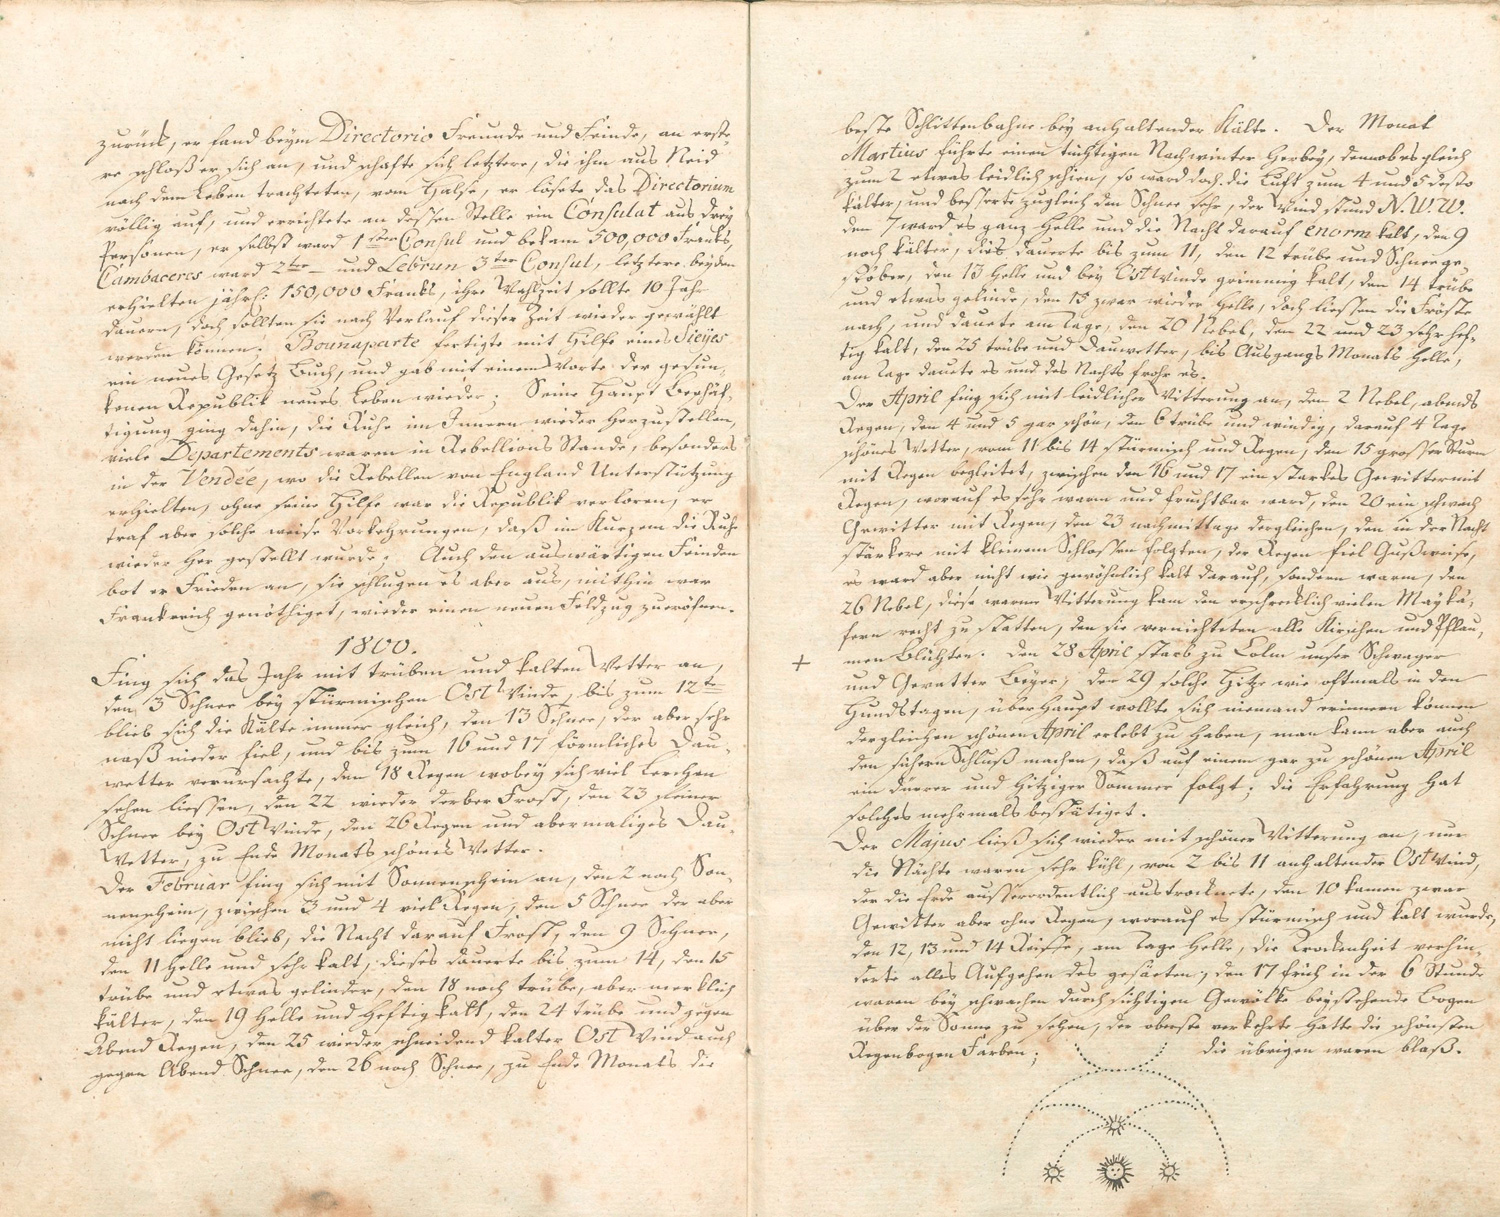 zurück, er fand beym Directorio Freunde und Feinde, an erste-
re schloß er sich an, und schafte sich letztere, die ihm aus Neid
nach dem Leben trachteten, vom Halse, er lösete das Directorium
völlig auf, und errichtete an dessen Stelle ein Consulat aus drey
Personen, er selbst ward 1ster Consul und bekam 500,000 Franks,
Cambaceres ward 2ter — und Lebrun 3ter Consul, letztere beyden
erhielten jährl: 150,000 Franks, ihre Wahlzeit sollte 10 Jahr
dauern, doch sollten sie nach Verlauf dieser Zeit wieder gewählt
werden können; Bounaparte fertigte mit Hilfe eines Sieÿes
ein neues Gesetz Buch, und gab mit einem Worte der gesun-
kenen Republik neues Leben wieder; Seine Haupt Beschäf-
tigung ging dahin, die Ruhe im Innern wieder herzustellen,
viele Departements waren in Rebellions Stande, besonders
in der Vendée, wo die Rebellen von England Unterstützung
erhielten, ohne seine Hilfe war die Republik verloren, er
traf aber solche weise Vorkehrungen, daß in Kurzem die Ruhe
wieder her gestellt wurde; Auch den auswärtigen Feinden
bot er Frieden an, sie schlugen es aber aus, mithin war
Frankreich genöthiget, wieder einen neuen Feldzug zu eröfnen.
1800.
Fing sich das Jahr mit trüben und kalten Wetter an,
den 3 Schnee bey stürmischen Ost Winde, bis zum 12te
blieb sich die Kälte immer gleich, den 13 Schnee, der aber sehr
naß nieder fiel, und bis zum 16 und 17 förmliches Dau-
wetter verursachte, den 18 Regen wobey sich viel Lerchen
sehen liessen, den 22 wieder derber Frost, den 23 kleiner
Schnee bey Ost Winde, den 26 Regen und abermaliges Dau-
Wetter, zu Ende Monats schönes Wetter.
Der Februar fing sich mit Sonnenschein an, den 2 noch Son-
nenschein, zwischen 3 und 4 viel Regen, den 5 Schnee der aber
nicht liegen blieb, die Nacht darauf Frost, den 9 Schnee,
den 11 helle und sehr kalt, dieses dauerte bis zum 14, den 15
trübe und etwas gelinder, den 18 noch trübe, aber merklich
kälter, den 19 helle und heftig kalt, den 24 trübe und gegen
Abend Regen, den 25 wieder schneidend kalter Ost Wind auch
gegen Abend Schnee, den 26 noch Schnee, zu Ende Monats die
beste Schlittenbahne bey anhaltender Kälte. Der Monat
Martius führte einen tüchtigen Nachwinter herbey, denn ob es gleich
zum 2 etwas leidlich schien, so ward doch die Luft zum 4 und 5 desto
kälter, und besserte zugleich den Schnee sehr, der Wind stund N.W.W.
den 7 ward es ganz helle und die Nacht darauf enorm kalt, den 9
noch kälter, dies dauerte bis zum 11, den 12 trübe und Schneege-
stöber, den 13 helle und bey Ost Winde grimmig kalt, den 14 trübe
und etwas gelinde, den 15 zwar wieder helle, doch liessen die Fröste
nach, und dauete am Tage, den 20 Nebel, den 22 und 23 sehr hef-
tig kalt, den 25 trübe und Dauwetter, bis Ausgangs Monats helle,
am Tage dauete es und des Nachts frohr es.
Der April fing sich mit leidlicher Witterung an, den 2 Nebel, abends
Regen, den 4 und 5 gar schön, den 6 trübe und windig, darauf 4 Tage
schönes Wetter, vom 11 bis 14 stürmisch und Regen, den 15 grosser Sturm
mit Regen begleitet, zwischen den 16 und 17 ein starkes Gewitter mit
Regen, worauf es sehr warm und fruchtbar ward, den 20 ein schwach
Gewitter mit Regen, den 23 nachmittage dergleichen, den in der Nacht
stärkere mit kleinem Schlossen folgten, der Regen fiel Gußweise,
es ward aber nicht wie gewöhnlich kalt darauf, sondern warm, den
26 Nebel, diese warme Witterung kam den erschrecklich vielen Maykä-
fern recht zu statten, den sie vernichteten alle Kirschen und Pflau-
+ men Blühten. Den 28 April starb zu Colm unser Schwager
und Gevatter Beyer; den 29 solche Hitze wie oftmals in den
Hundstagen, überhaupt wollte sich niemand erinnern können
dergleichen schönen April erlebt zu haben, man kann aber auch
den sichern Schluß machen, daß auf einem gar zu schönen April
ein dürrer und hitziger Sommer folgt; die Erfahrung hat
solches mehrmals bestätiget.
Der Majus ließ sich wieder mit schöner Witterung an, nur
die Nächte waren sehr kühl, von 2 bis 11 anhaltender Ost Wind,
der die Erde ausserordentlich austrocknete, den 10 kamen zwar
Gewitter aber ohne Regen, worauf es stürmisch und kalt wurde,
den 12, 13 und 14 Reiffe, am Tage helle, die Trockenheit verhin-
derte alles Aufgehen des gesäeten; den 17 früh in der 6 Stunde
waren bey schwachen durchsichtigen Gewölke beystehende Bogen
über der Sonne zu sehen, der oberste verkehrte hatte die schönsten
Regenbogen Farben; die übrigen waren blaß.